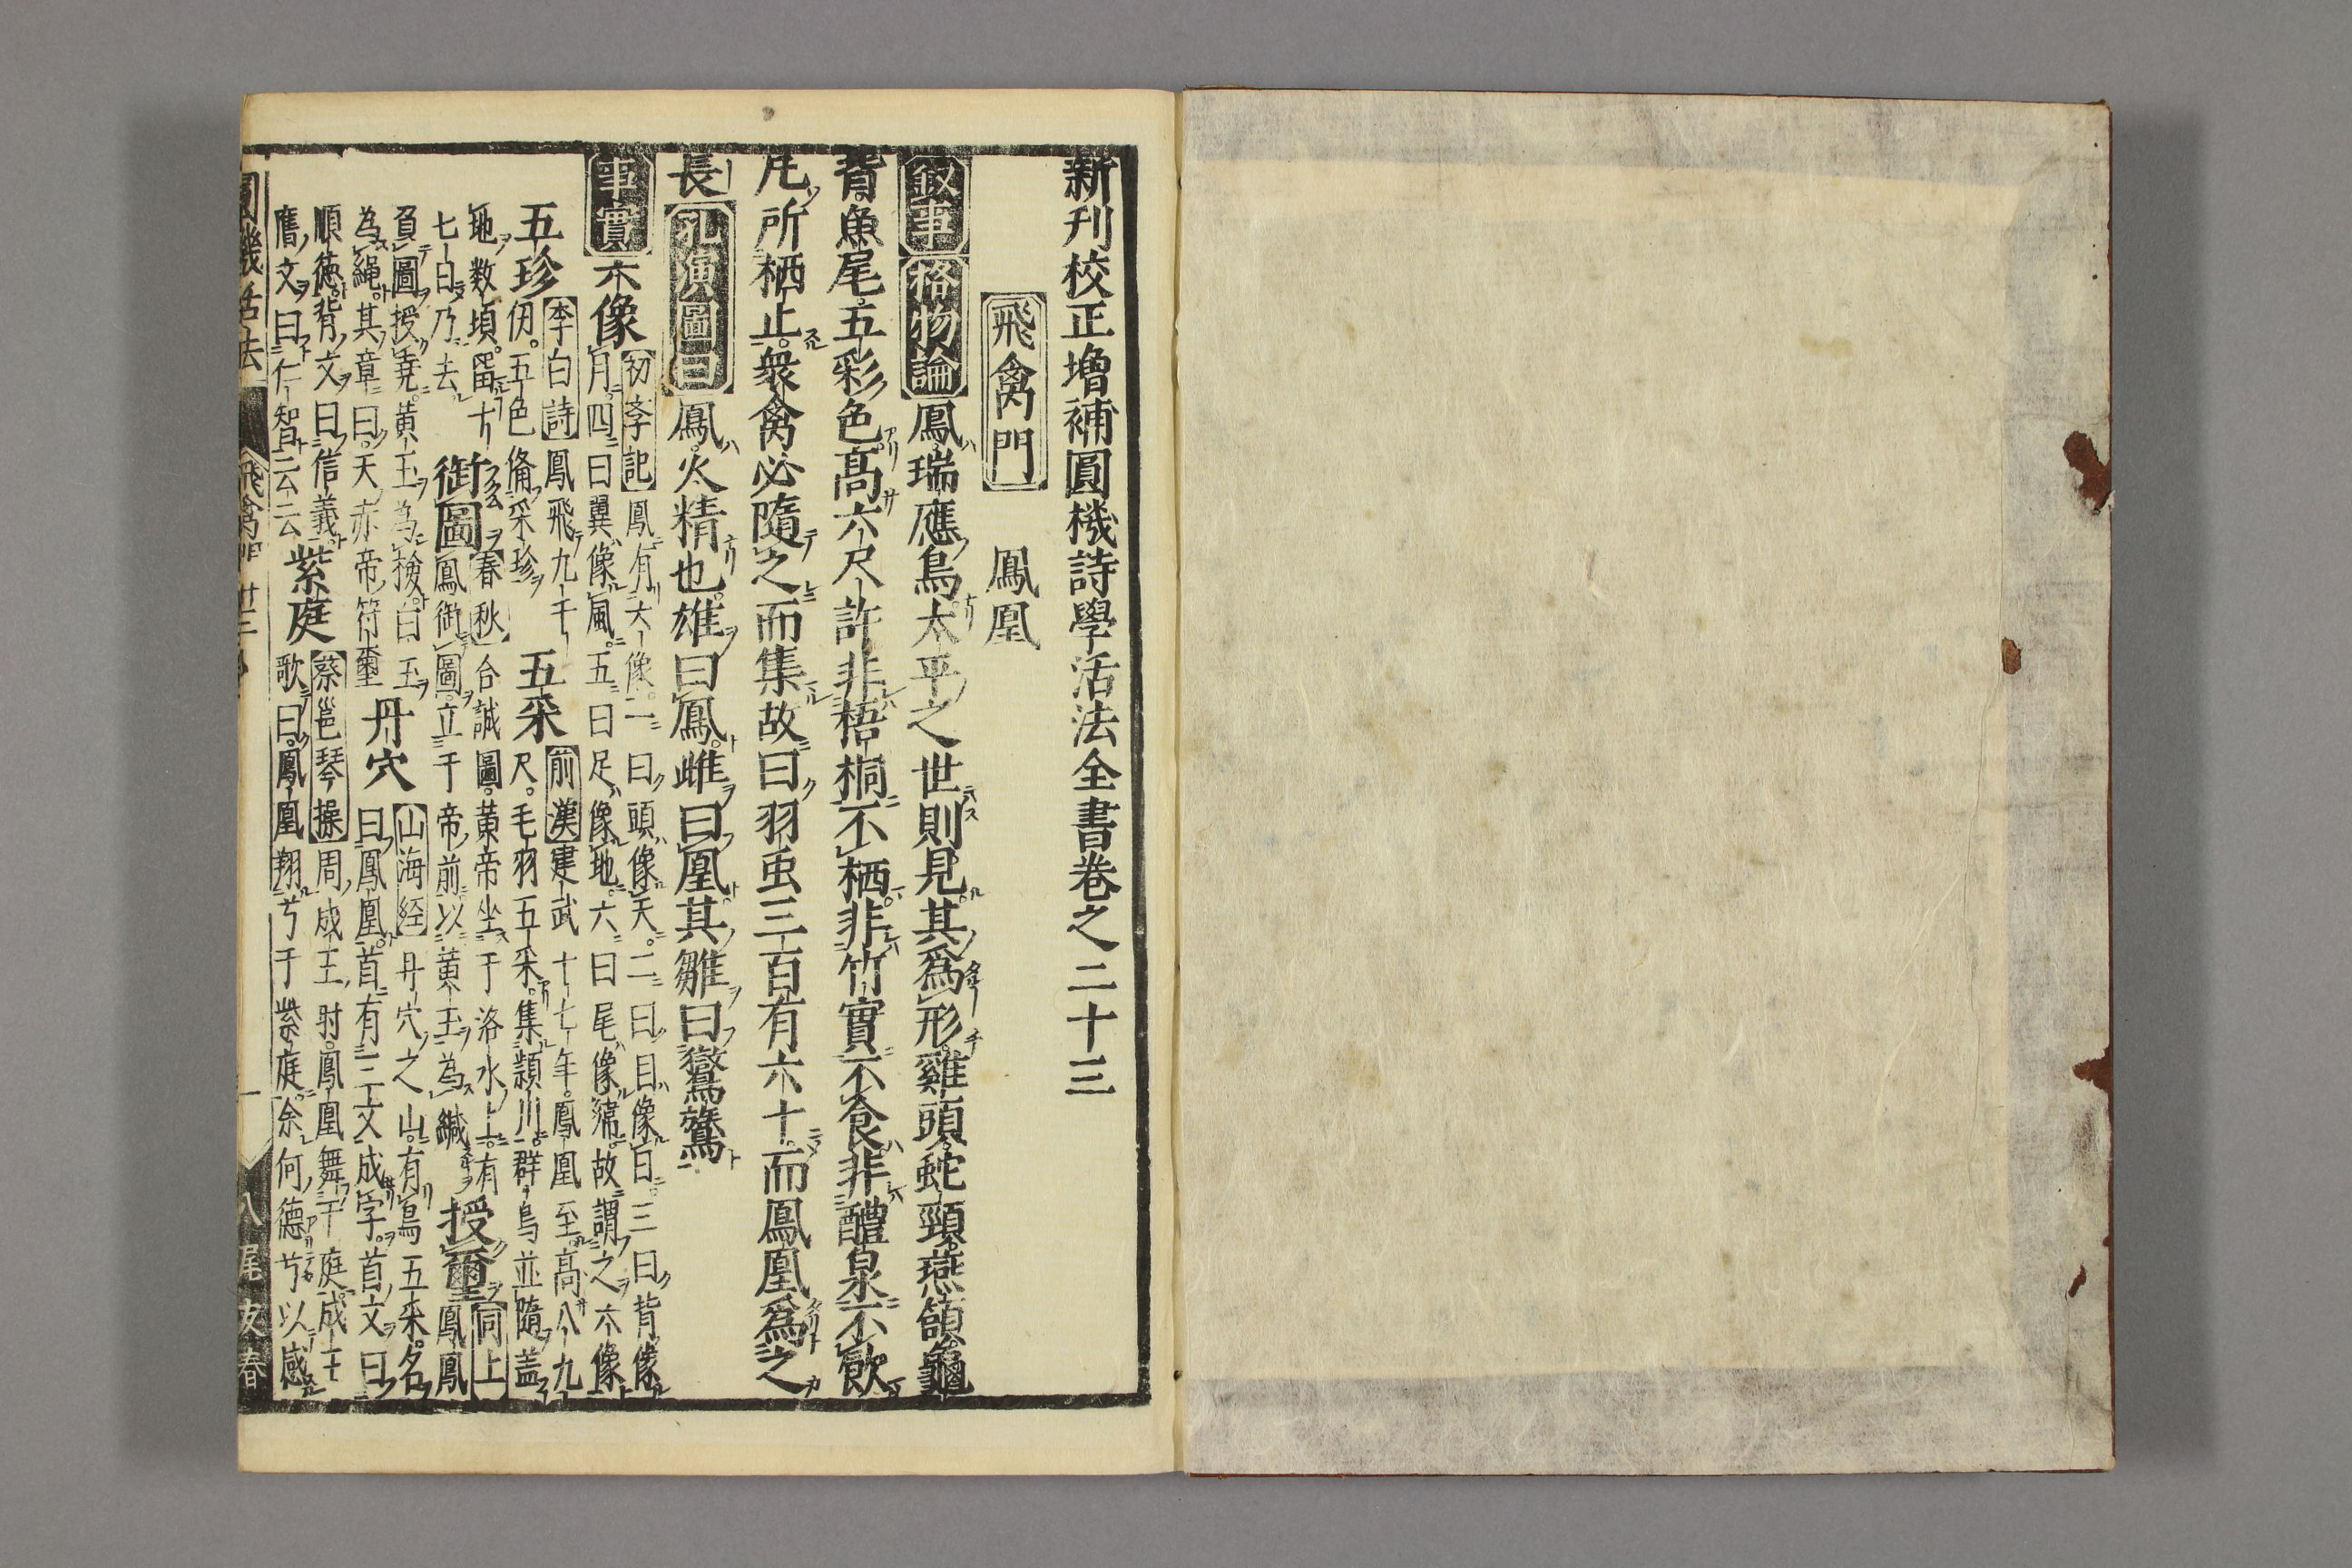 新刊校正増補圓機詩學活法全書巻之二十三
飛禽門　鳳凰
叙事 格物論 鳳瑞應鳥太平之世則見其爲形雞頭蛇頸燕頷龜
背魚尾五彩色高六尺許非梧桐不栖非竹實不食非醴泉不飲
凡所栖止衆禽必隨之而集故曰羽虫三百有六十而鳳凰爲之
長 孔演圖曰 鳳火精也雄曰鳳雌曰凰其雛曰鸑鷟
事實 六像 初李記 鳳有六像一曰頭像天二曰目像日三曰背像月四曰翼像風五曰足像地六曰尾像緯故謂之六像
五珍 李白詩 鳳飛九千仞五色備采珍 五采 前漢 建武十七年鳳凰至高八九尺毛羽五采集頴川群鳥並隨盖
地数頃留十七日乃去 御圖 春秋 合誠圖黄帝坐于洛水上有鳳御圖立于帝前以黄玉為緘 授璽 同上 鳳鳳
負圖授堯黄玉為検白玉為繩其章曰天赤帝符璽 丹穴 山海経 丹穴之山有鳥五采名曰鳳凰首有三文成字首文曰
順徳背文曰信義膺文曰仁智云云 紫庭 蔡邕琴操 周成王时鳳凰舞于庭成王歌曰鳳凰翔兮于紫庭余何德兮以感
圓機活法 飛禽門 廿三 一 八尾友春